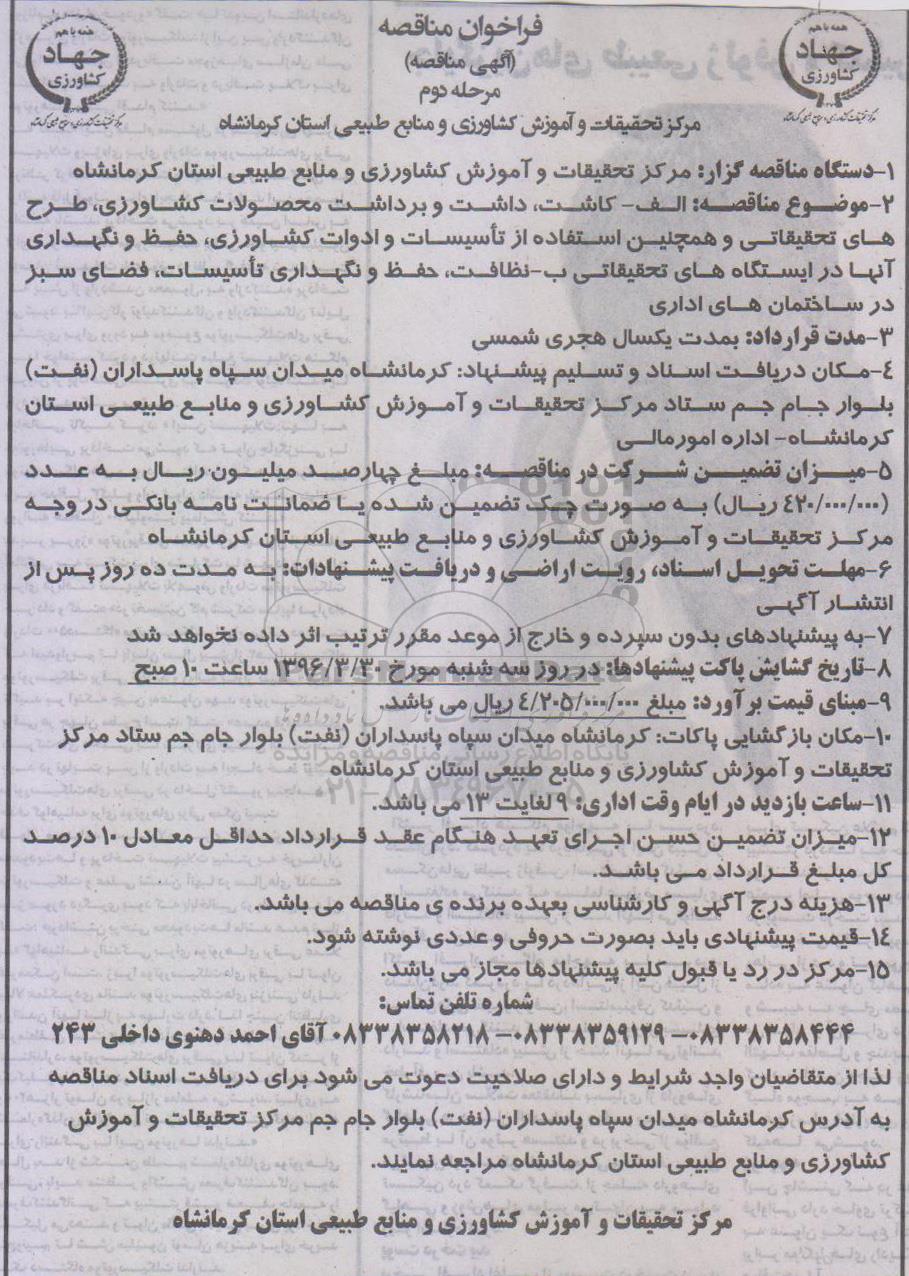 فراخوان مناقصه
(آگهی مناقصه)
مرحله دوم
مرکز تحقیقات و آموزش کشاورزی و منابع طبیعی استان کرمانشاه
همه با هم
جهاد
کشاورزی
همه با هم
جهاد
کشاورزی
۱-دستگاه مناقصه گزار: مرکز تحقیقات و آموزش کشاورزی و منابع طبیعی استان کرمانشاه
۲-موضوع مناقصه: الف- کاشت، داشت و برداشت محصولات کشاورزی، طرح
های تحقیقاتی و همچنین استفاده از تأسیسات و ادوات کشاورزی، حفظ و نگهداری
آنها در ایستگاه های تحقیقاتی ب-نظافت، حفظ و نگهداری تأسیسات، فضای سبز
در ساختمان های اداری
۳-مدت قرارداد: بمدت یکسال هجری شمسی
۴-مکان دریافت اسناد و تسلیم پیشنهاد: کرمانشاه میدان سپاه پاسداران (نفت)
بلوار جام جم ستاد مرکز تحقیقات و آموزش کشاورزی و منابع طبیعی استان
کرمانشاه- اداره امورمالی
۵-میزان تضمین شرکت در مناقصه: مبلغ چهارصد میلیون ریال به عدد
(۴۲۰/۰۰۰/۰۰۰ ریال) به صورت چک تضمین شده یا ضمانت نامه بانکی در وجه
مرکز تحقیقات و آموزش کشاورزی و منابع طبیعی استان کرمانشاه
۶-مهلت تحویل اسناد، رویت اراضی و دریافت پیشنهادات: به مدت ده روز پس از
انتشار آگهی
۷-به پیشنهادهای بدون سپرده و خارج از موعد مقرر ترتیب اثر داده نخواهد شد
۸-تاریخ گشایش پاکت پیشنهادها: در روز سه شنبه مورخ ۱۳۹۶/۳/۳۰ ساعت ۱۰ صبح
۹-مبنای قیمت برآورد: مبلغ ۴/۲۰۵/۰۰۰/۰۰۰ ریال می باشد.
۱۰-مکان بازگشایی پاکات: کرمانشاه میدان سپاه پاسداران (نفت) بلوار جام جم ستاد مرکز
تحقیقات و آموزش کشاورزی و منابع طبیعی استان کرمانشاه
پایگاه اطلاع رسانی مناقصه و مزایده
۰۲۱-۸۸۳۴۹۶۷۰-۵
۱۱-ساعت بازدید در ایام وقت اداری: ۹ لغایت ۱۳ می باشد.
۱۲-میزان تضمین حسن اجرای تعهد هنگام عقد قرارداد حداقل معادل ۱۰ درصد
کل مبلغ قرارداد می باشد.
۱۳-هزینه درج آگهی و کارشناسی بعهده برنده ی مناقصه می باشد.
۱۴-قیمت پیشنهادی باید بصورت حروفی و عددی نوشته شود.
۱۵-مرکز در رد یا قبول کلیه پیشنهادها مجاز می باشد.
شماره تلفن تماس:
۰۸۳۳۸۳۵۸۴۴۴- ۰۸۳۳۸۳۵۹۱۲۹- ۰۸۳۳۸۳۵۸۲۱۸ آقای احمد دهنوی داخلی ۲۴۳
لذا از متقاضیان واجد شرایط و دارای صلاحیت دعوت می شود برای دریافت اسناد مناقصه
به آدرس کرمانشاه میدان سپاه پاسداران (نفت) بلوار جام جم مرکز تحقیقات و آموزش
کشاورزی و منابع طبیعی استان کرمانشاه مراجعه نمایند.
مرکز تحقیقات و آموزش کشاورزی و منابع طبیعی استان کرمانشاه